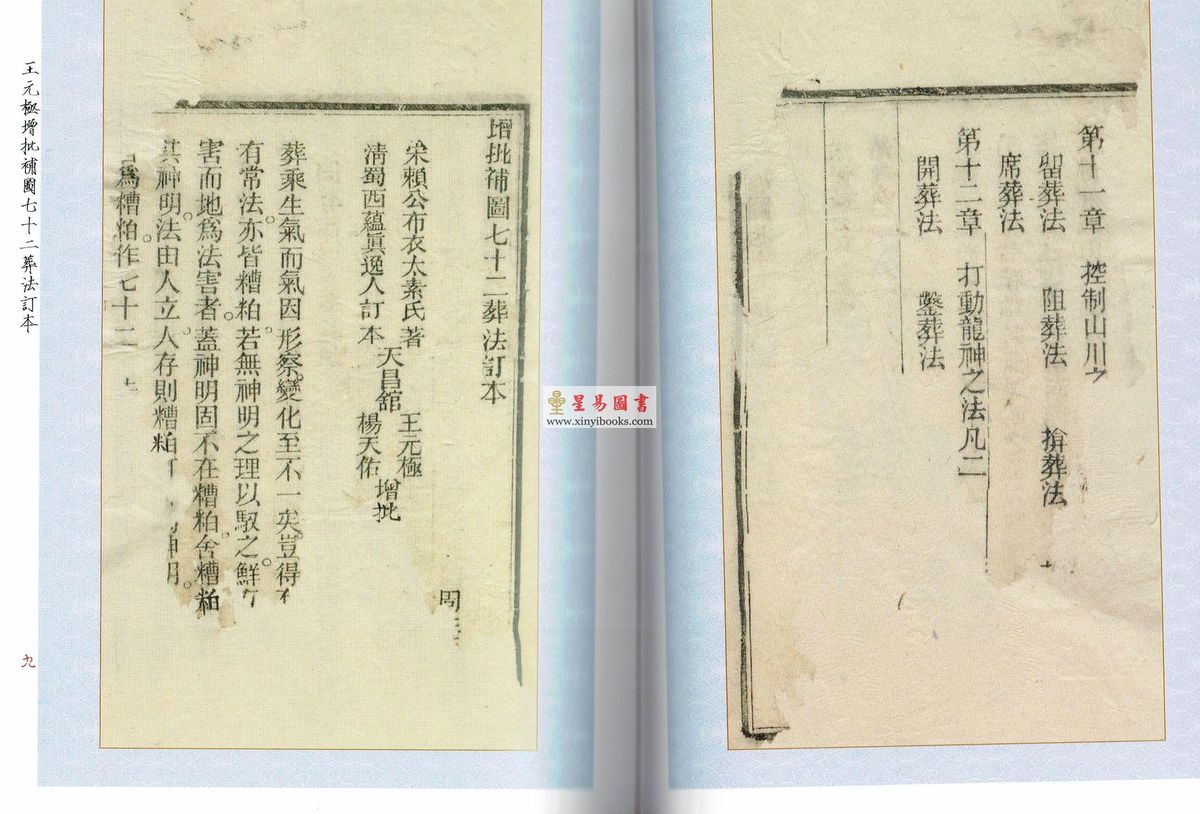 第十一章　控制山川之
留葬法　阻葬法　揜葬法
席葬法
第十二章　打動龍神之法凡二
開葬法　鑿葬法
增批補圖七十二葬法訂本
宋賴公布衣太素氏著
清蜀西蘊眞逸人訂本
天昌舘
王元極
楊天佑
增批
葬乘生氣而氣因形察變化至不一矣豈得
有常法亦皆糟粕若無神明之理以馭之鮮
害而地爲法害者蓋神明固不在糟粕舍糟粕
其神明法由人立人存則糟粕 神明
爲糟粕作七十二
王元極增批補圖七十二葬法訂本
九
星易圖書
www.xinyibooks.com